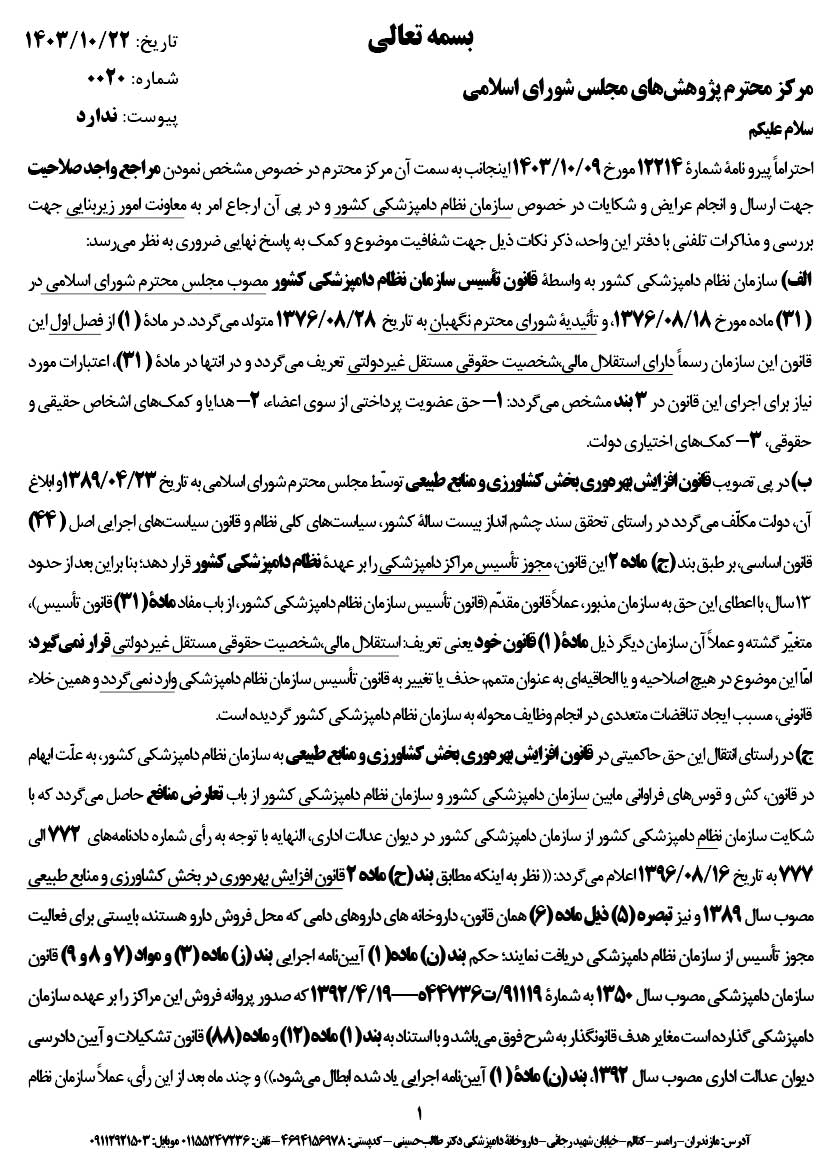 بسمه تعالی
تاریخ: ۱۴۰۳/۱۰/۲۲
شماره: ۰۰۲۰
پیوست: ندارد
مرکز محترم پژوهش‌های مجلس شورای اسلامی
سلام علیکم
احتراماً پیرو نامهٔ شمارهٔ ۱۲۲۱۴ مورخ ۱۴۰۳/۱۰/۰۹ اینجانب به سمت آن مرکز محترم در خصوص مشخص نمودن مراجع واجد صلاحیت
جهت ارسال و انجام عرایض و شکایات در خصوص سازمان نظام دامپزشکی کشور و در پی آن ارجاع امر به معاونت امور زیربنایی جهت
بررسی و مذاکرات تلفنی با دفتر این واحد، ذکر نکات ذیل جهت شفافیت موضوع و کمک به پاسخ نهایی ضروری به نظر می‌رسد:
الف) سازمان نظام دامپزشکی کشور به واسطهٔ قانون تأسیس سازمان نظام دامپزشکی کشور مصوب مجلس محترم شورای اسلامی در
(۳۱) ماده مورخ ۱۳۷۶/۰۸/۱۸، و تأئیدیهٔ شورای محترم نگهبان به تاریخ ۱۳۷۶/۰۸/۲۸ متولد می‌گردد. در مادهٔ (۱) از فصل اول این
قانون این سازمان رسماً دارای استقلال مالی،شخصیت حقوقی مستقل غیردولتی تعریف می‌گردد و در انتها در مادهٔ (۳۱)، اعتبارات مورد
نیاز برای اجرای این قانون در ۳ بند مشخص می‌گردد: ۱– حق عضویت پرداختی از سوی اعضاء، ۲– هدایا و کمک‌های اشخاص حقیقی و
حقوقی، ۳– کمک‌های اختیاری دولت.
ب) در پی تصویب قانون افزایش بهره‌وری بخش کشاورزی و منابع طبیعی توسّط مجلس محترم شورای اسلامی به تاریخ ۱۳۸۹/۰۴/۲۳ و ابلاغ
آن، دولت مکلّف می‌گردد در راستای تحقق سند چشم انداز بیست سالهٔ کشور، سیاست‌های کلی نظام و قانون سیاست‌های اجرایی اصل (۴۴)
قانون اساسی، بر طبق بند (ج) ماده ۲ این قانون، مجوز تأسیس مراکز دامپزشکی را بر عهدهٔ نظام دامپزشکی کشور قرار دهد؛ بنا براین بعد از حدود
۱۳ سال، با اعطای این حق به سازمان مذبور، عملاً قانون مقدّم (قانون تأسیس سازمان نظام دامپزشکی کشور، از باب مفاد مادهٔ (۳۱) قانون تأسیس)،
متغیّر گشته و عملاً آن سازمان دیگر ذیل مادهٔ (۱) قانون خود یعنی تعریف: استقلال مالی،شخصیت حقوقی مستقل غیردولتی قرار نمی‌گیرد؛
امّا این موضوع در هیچ اصلاحیه و یا الحاقیه‌ای به عنوان متمم، حذف یا تغییر به قانون تأسیس سازمان نظام دامپزشکی وارد نمی‌گردد و همین خلاء
قانونی، مسبب ایجاد تناقضات متعددی در انجام وظایف محوله به سازمان نظام دامپزشکی کشور گردیده است.
ج) در راستای انتقال این حق حاکمیتی در قانون افزایش بهره‌وری بخش کشاورزی و منابع طبیعی به سازمان نظام دامپزشکی کشور، به علّت ابهام
در قانون، کش و قوس‌های فراوانی مابین سازمان دامپزشکی کشور و سازمان نظام دامپزشکی کشور از باب تعارض منافع حاصل می‌گردد که با
شکایت سازمان نظام دامپزشکی کشور از سازمان دامپزشکی کشور در دیوان عدالت اداری، النهایه با توجه به رأی شماره دادنامه‌های ۷۷۲ الی
۷۷۷ به تاریخ ۱۳۹۶/۰۸/۱۶ اعلام می‌گردد: (( نظر به اینکه مطابق بند (ح) ماده ۲ قانون افزایش بهره‌وری در بخش کشاورزی و منابع طبیعی
مصوب سال ۱۳۸۹ و نیز تبصره (۵) ذیل ماده (۶) همان قانون، داروخانه های داروهای دامی که محل فروش دارو هستند، بایستی برای فعالیت
مجوز تأسیس از سازمان نظام دامپزشکی دریافت نمایند؛ حکم بند (ن) ماده (۱) آیین‌نامه اجرایی بند (ز) ماده (۳) و مواد (۷ و ۸ و ۹) قانون
سازمان دامپزشکی مصوب سال ۱۳۵۰ به شمارهٔ ۹۱۱۱۹/ت۴۴۷۳۶ه—۱۳۹۲/۴/۱۹ که صدور پروانه فروش این مراکز را بر عهده سازمان
دامپزشکی گذارده است مغایر هدف قانونگذار به شرح فوق می‌باشد و با استناد به بند (۱) ماده (۱۲) و ماده (۸۸) قانون تشکیلات و آیین دادرسی
دیوان عدالت اداری مصوب سال ۱۳۹۲، بند (ن) مادهٔ (۱) آیین‌نامه اجرایی یاد شده ابطال می‌شود.)) و چند ماه بعد از این رأی، عملاً سازمان نظام
۱
آدرس: مازندران–رامسر–کتالم–خیابان شهید رجائی–داروخانهٔ دامپزشکی دکتر طالب‌حسینی – کدپستی: ۴۶۹۴۱۵۶۹۷۸ – تلفن: ۰۱۱۵۵۲۴۷۲۳۶ موبایل: ۰۹۱۱۲۹۲۱۵۰۳